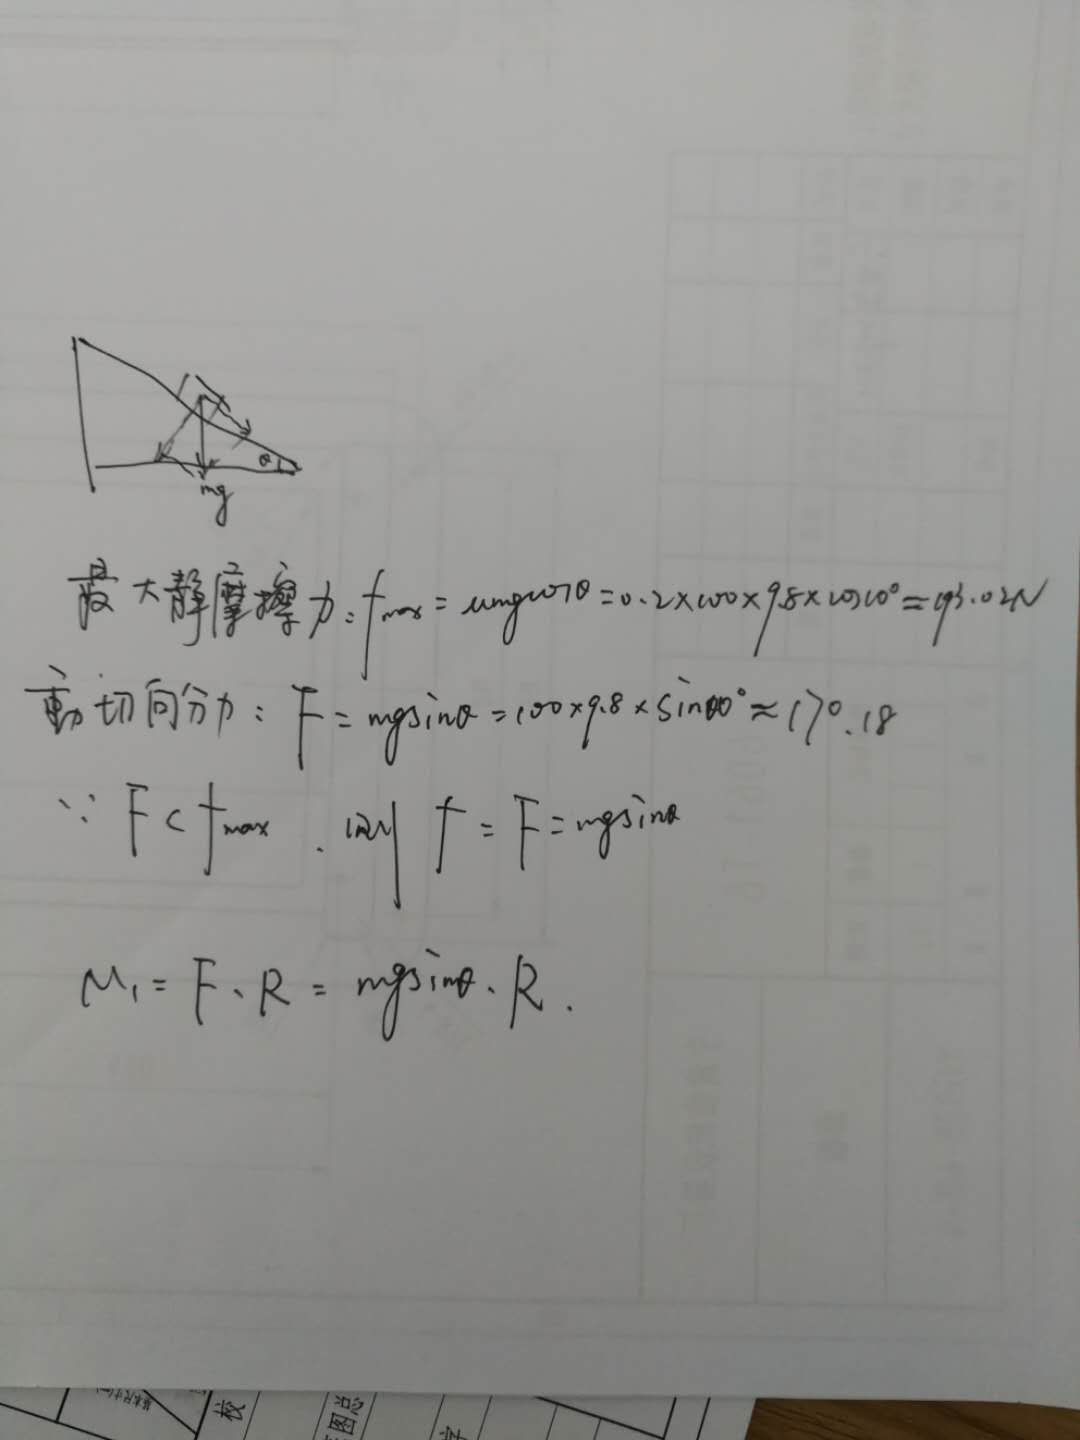 θ
mg
最大静摩擦力: fmax = umgcosθ = 0.2×100×9.8×cos10° ≈ 193.02N
重力切向分力: F = mgsinθ = 100×9.8×sin10° ≈ 170.18
∵ F < fmax . 则 f = F = mgsinθ
M₁ = F、R = mgsinθ、R .
校
图总